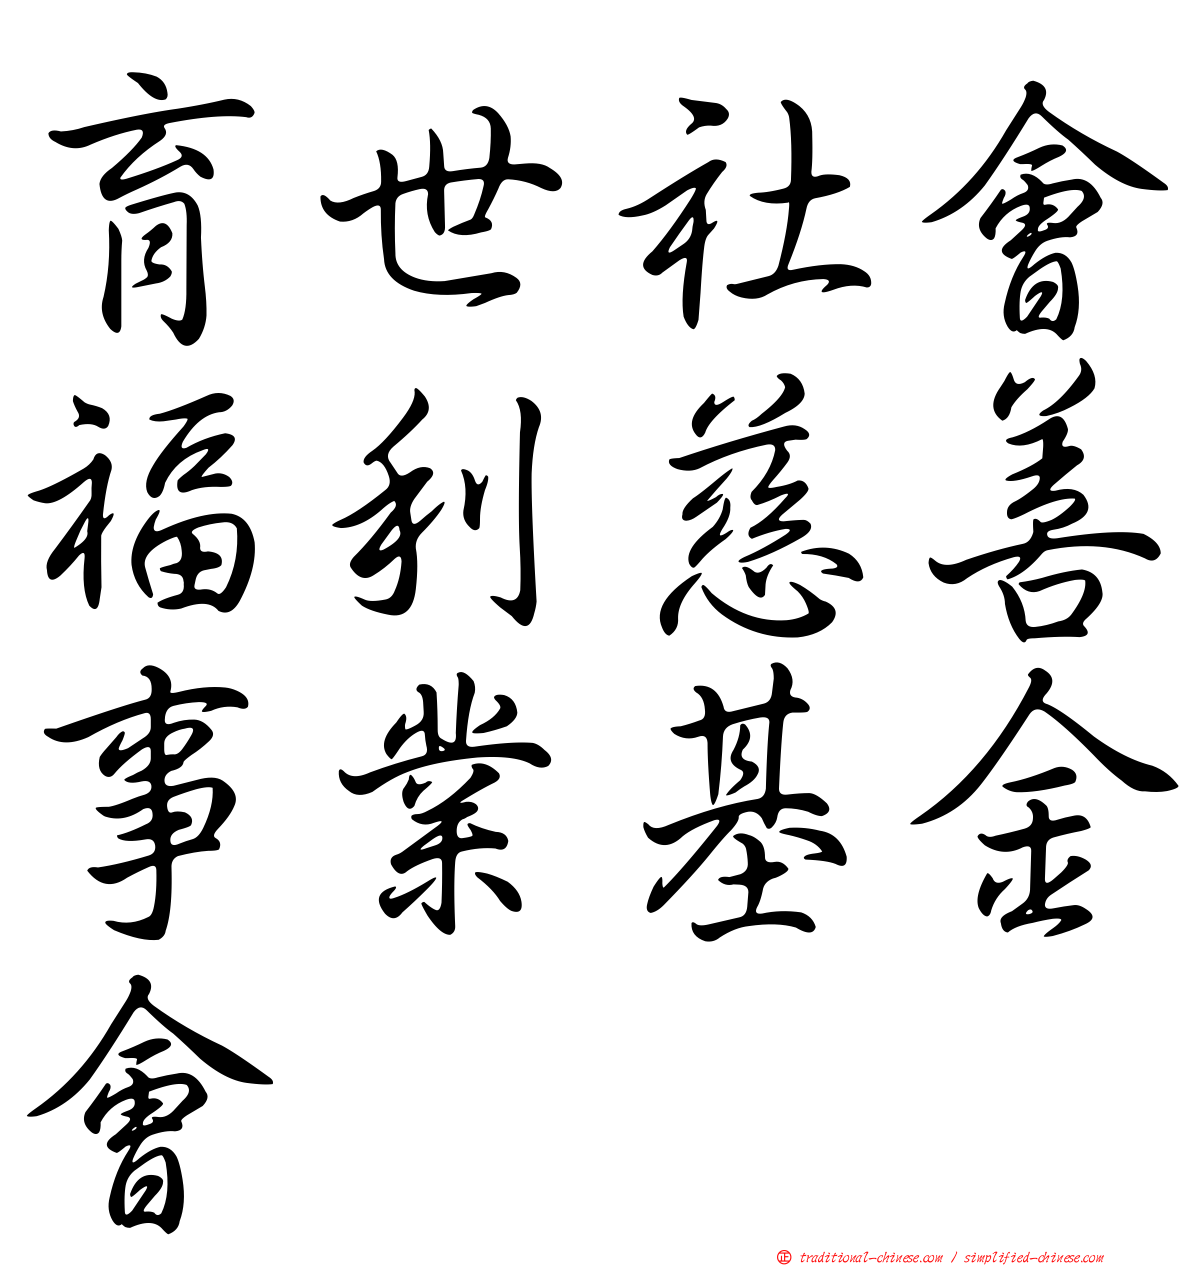 育世社會
福利慈善
事業基金
會
正 traditional-chinese.com / simplified-chinese.com